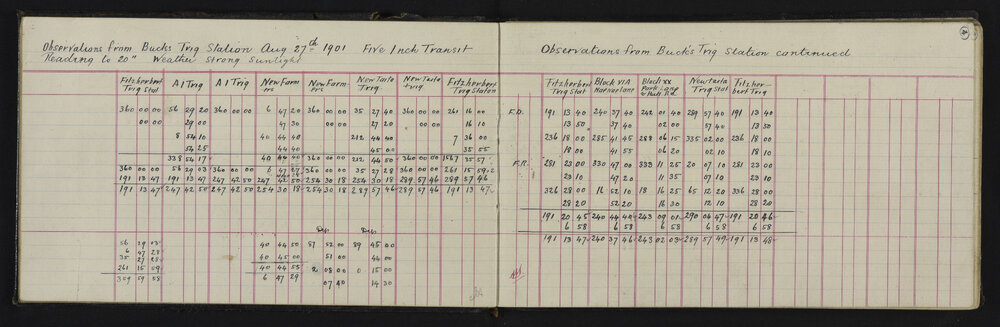 Observations from Bucks Trig Station Aug 27th 1901 Five Inch Transit
Reading to 20" Weather Strong Sunlight
Fitzherbert Trig Stat A1 Trig A1 Trig New Farm New Farm New Taita Trig New Taita Trig Fitzherbert Trig Station
360 00 00 56 29 20 360 00 00 6 47 20 360 00 00 35 27 40 360 00 00 261 16 00
00 00 29 00 47 30 00 00 27 20 00 00 16 10
8 54 10 40 44 40 212 44 40 7 36 00
54 25 44 40 45 00 35 55
328 54 17 40 44 40 360 00 00 212 44 50 360 00 00 1567 35 57
360 00 00 56 29 03 360 00 00 6 47 27 360 00 00 35 27 28 360 00 00 261 15 59
191 13 47 191 13 47 247 42 50 247 42 50 254 30 18 254 30 18 289 57 46 289 57 46
191 13 47 247 42 50 247 42 50 254 30 18 254 30 18 289 57 46 289 57 46 191 13 47
Dep. Dep.
56 29 03 40 44 50 87 52 00 89 45 00
6 47 28 40 45 00 51 00 44 00
35 27 28 40 44 55 2 08 00 0 15 00
261 15 59 6 47 29 07 40 14 30
359 59 58
4
Observations from Buck's Trig Station continued
Fitzherbert Trig Stat Block VIA Block XX Park Lane New Taita Trig Stat Fitzherbert Trig
F.D. 191 13 40 240 37 40 242 01 40 289 57 40 191 13 40
13 50 37 40 02 00 57 40 13 50
236 18 00 285 41 45 288 06 15 335 02 00 236 18 00
18 00 41 55 06 20 02 10 18 10
F.R. 281 23 00 330 47 00 333 11 25 20 07 10 281 23 00
23 10 47 20 11 35 07 10 23 10
326 28 00 16 52 10 18 16 25 65 12 20 326 28 00
28 20 52 20 16 30 12 10 28 20
191 20 45 240 44 44 243 09 01 290 04 47 191 20 46
6 58 6 58 6 58 6 58 6 58
191 13 47 240 37 46 243 02 03 289 57 49 191 13 48